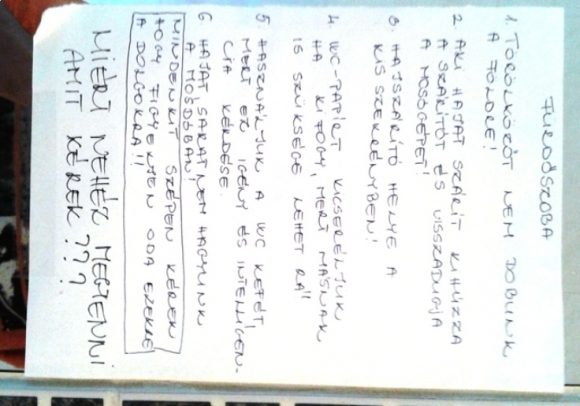 FÜRDŐSZOBA
1. TÖRÖLKÖZŐT NEM DOBUNK
A FÖLDRE!
2. AKI HAJAT SZÁRÍT KIHÚZZA
A SZÁRÍTÓT ÉS VISSZADUGJA
A MOSÓGÉPET!
3. HAJSZÁRÍTÓ HELYE A
KIS SZEKRÉNYBEN!
4. WC-PAPÍRT KICSERÉLJÜK
HA KIFOGY, MERT MÁSNAK
IS SZÜKSÉGE LEHET RÁ!
5. HASZNÁLJUK A WC KEFÉT,
MERT EZ IGÉNY ÉS INTELLIGEN-
CIA KÉRDÉSE.
6 HAJAT, SARAT NEM HAGYUNK
A MOSDÓBAN!
MINDENKIT SZÉPEN KÉREK,
HOGY FIGYELJEN ODA EZEKRE
A DOLGOKRA!!
MIÉRT NEHÉZ MEGTENNI
AMIT KÉREK???